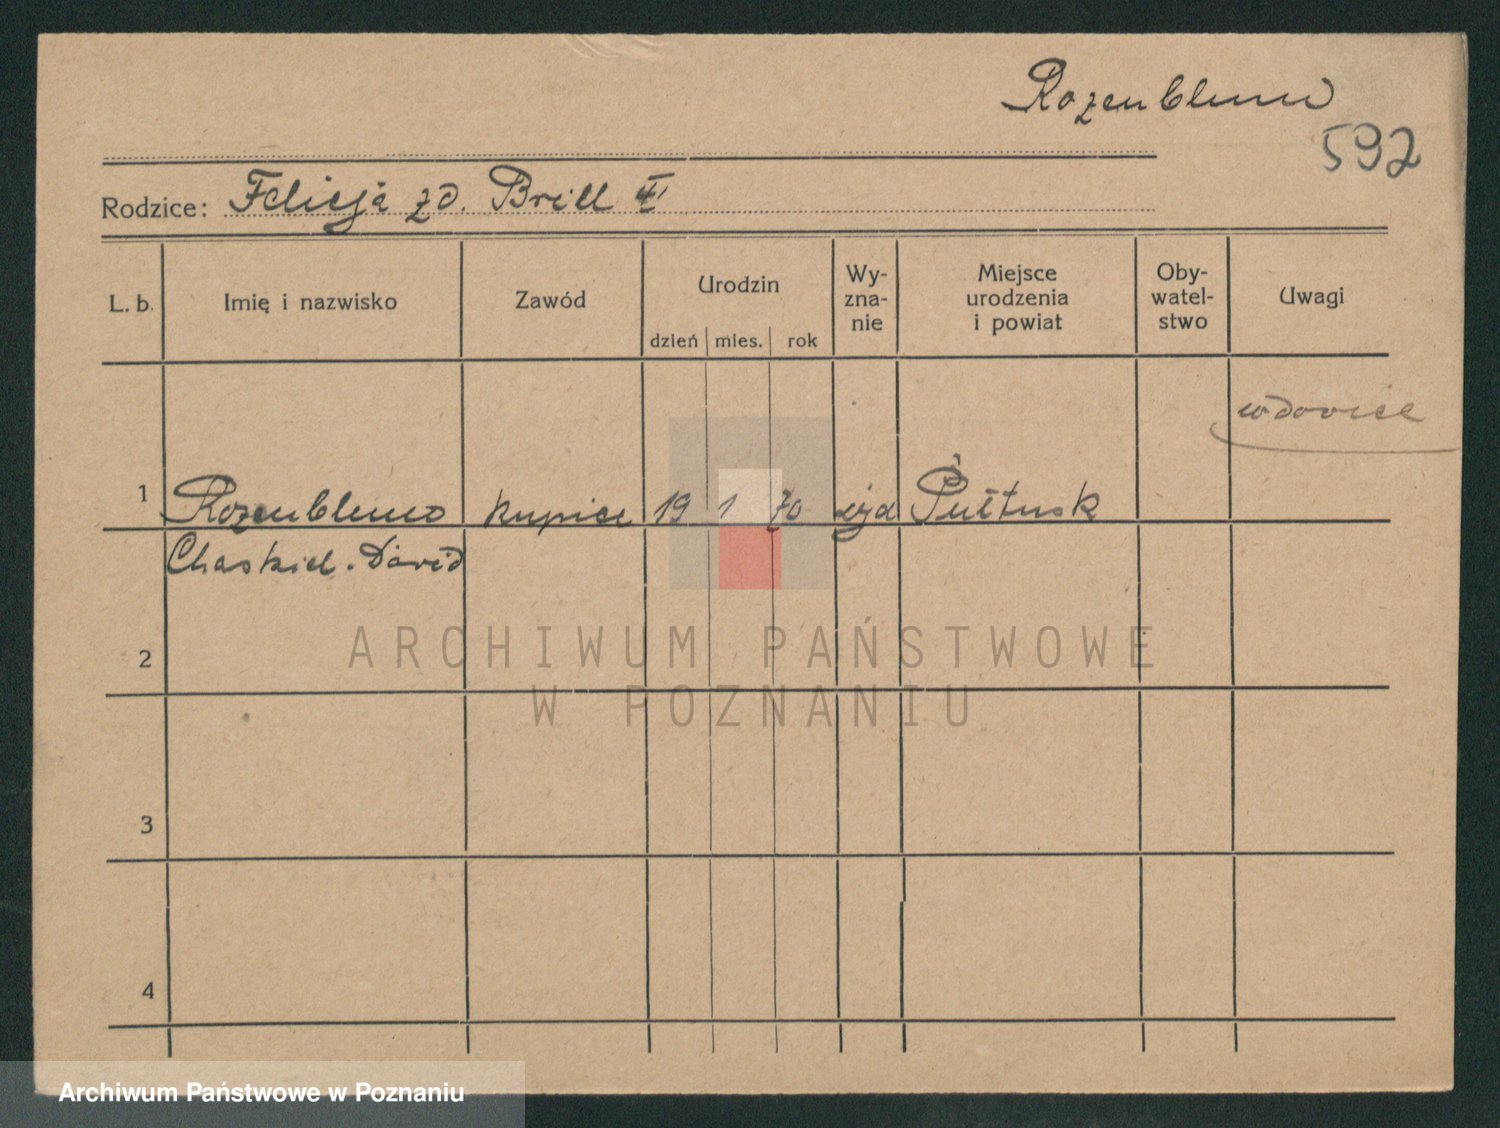 Rozenblum
592
Rodzice: Felicja zd. Brill
L. b. Imię i nazwisko Zawód Urodzin dzień mies. rok Wy-zna-nie Miejsce urodzenia i powiat Oby-watel-stwo Uwagi
wdowiec
1 Rozenblum kupiec 19 1 70 żyd Pułtusk
Chaskiel. Dawid
2
ARCHIWUM PAŃSTWOWE
W POZNANIU
3
4
Archiwum Państwowe w Poznaniu